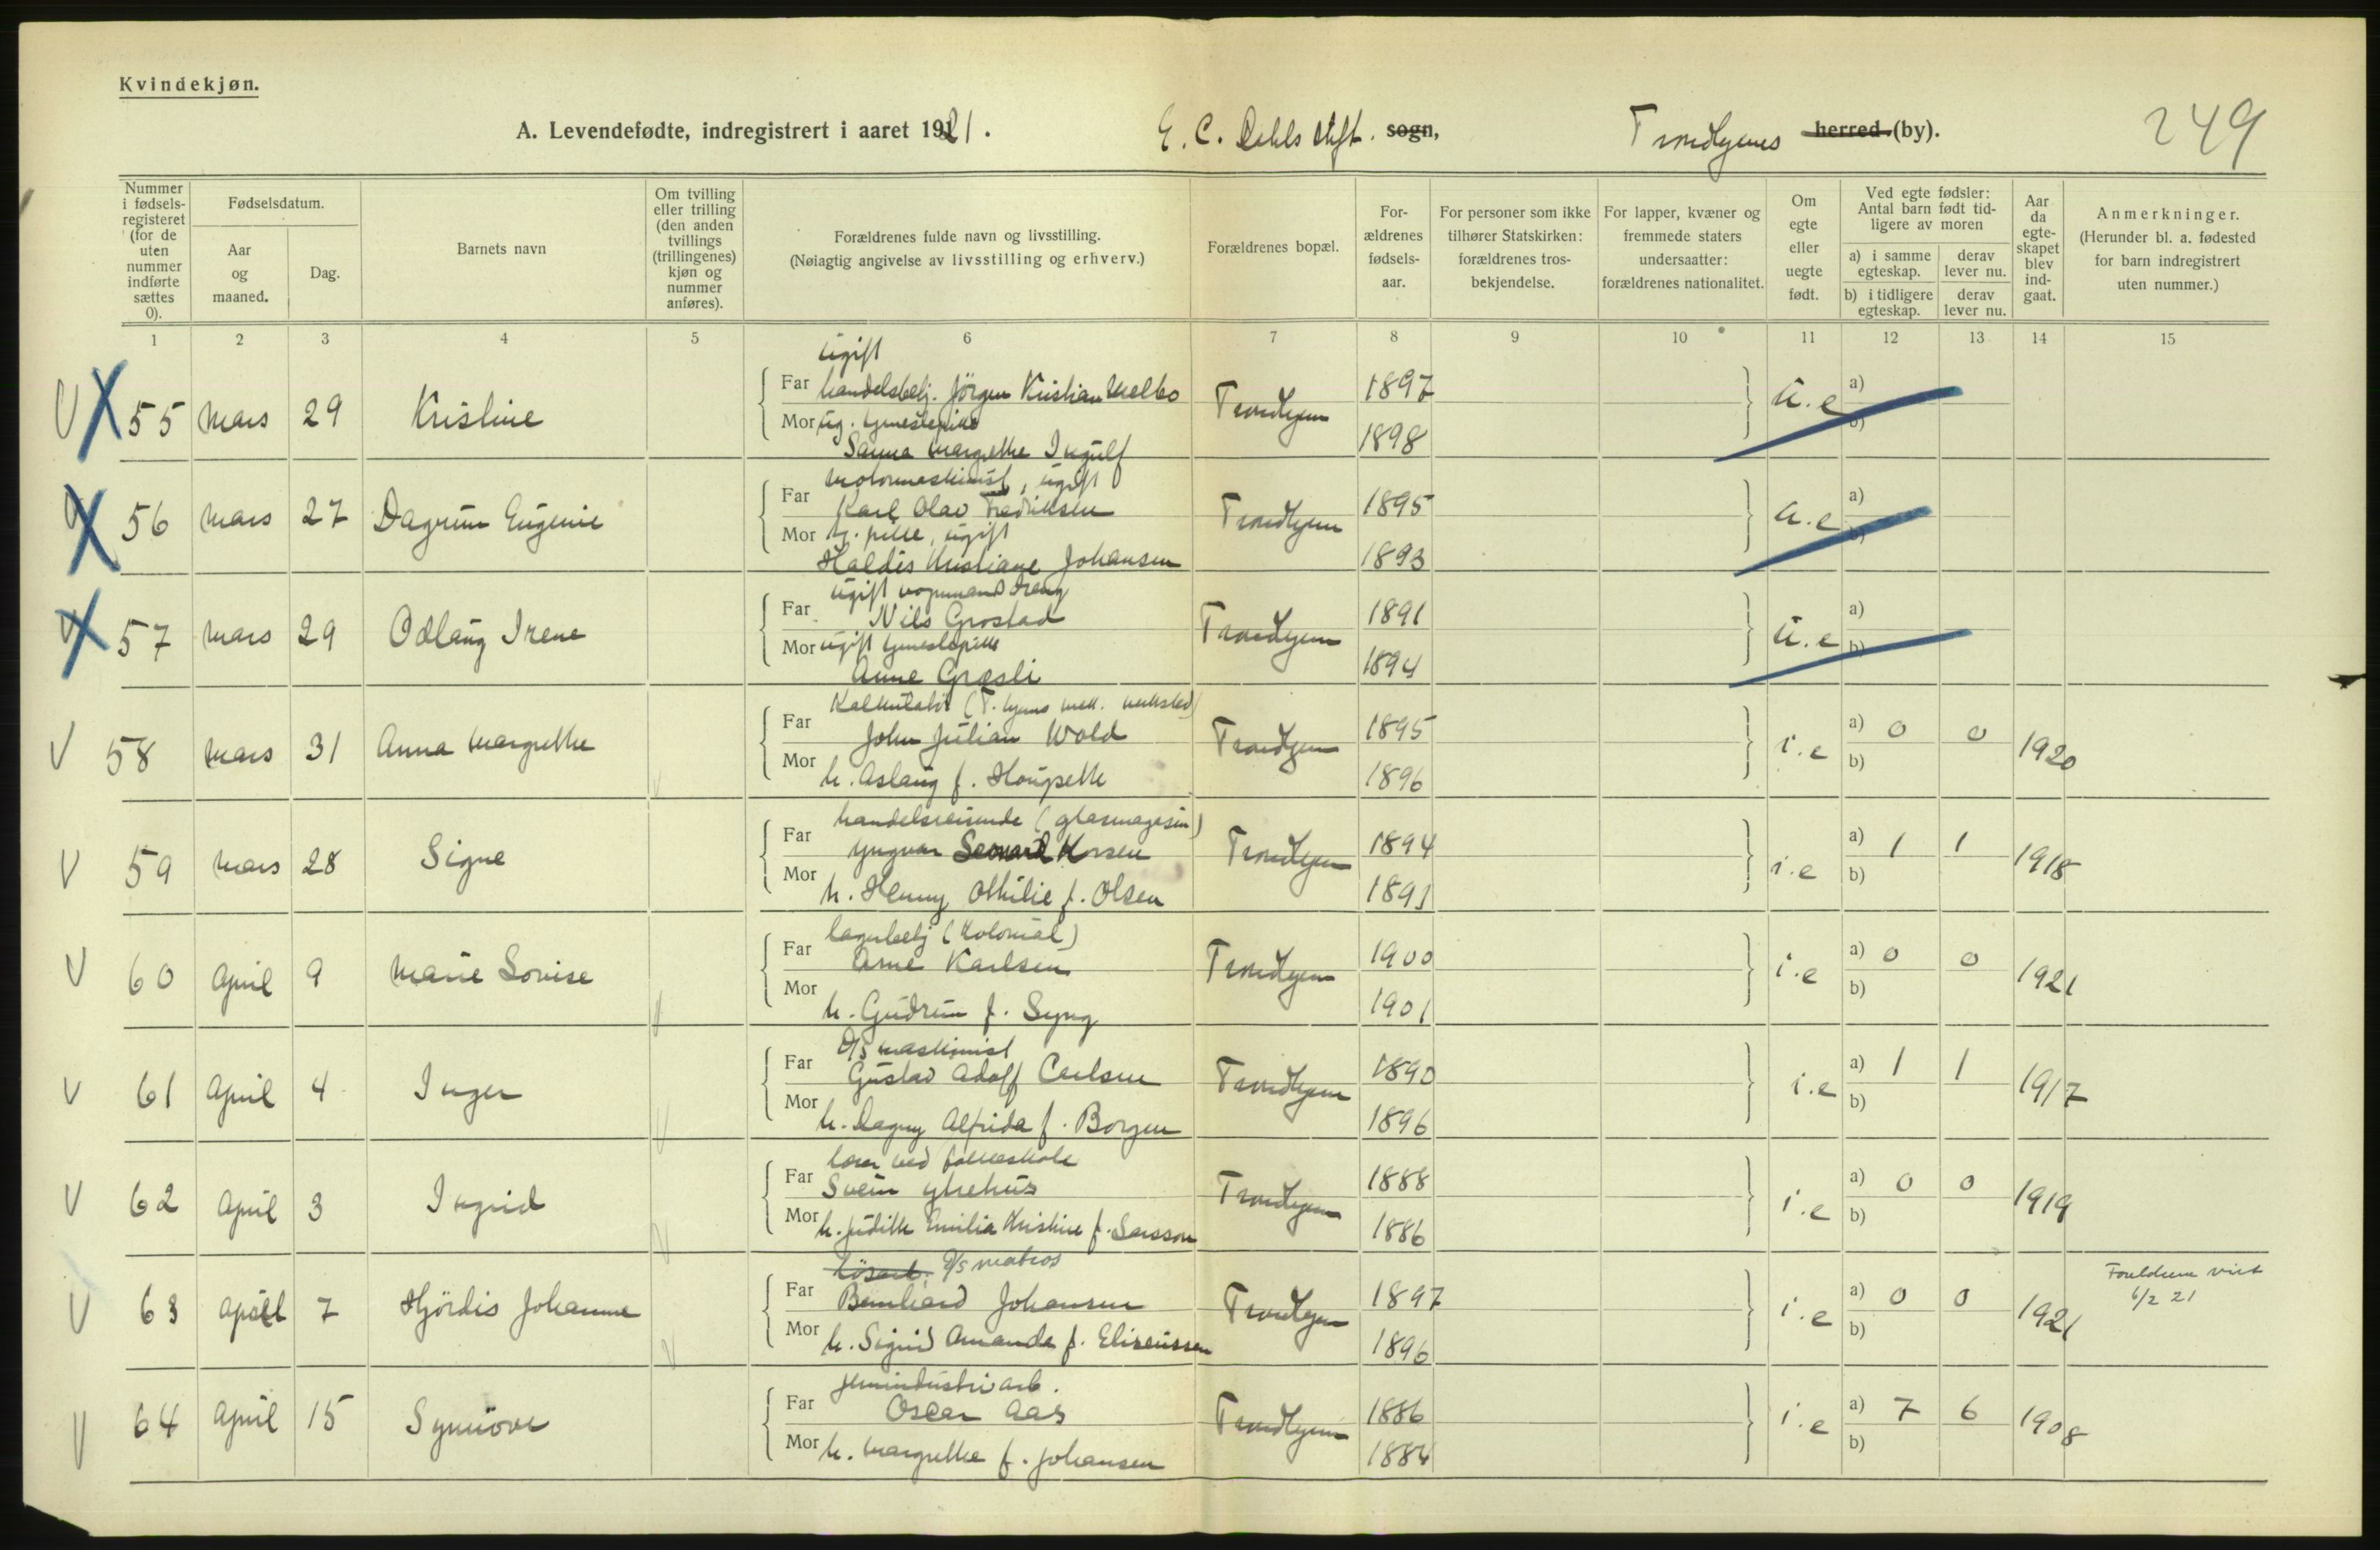 Kvindekjøn.
A. Levendefødte, indregistrert i aaret 1921. E. C. Dahls stift. sogn, Trondhjems herred (by). 249
Nummer i fødselsregisteret (for de uten nummer indførte sættes 0).
Fødselsdatum.
Aar og maaned.
Dag.
Barnets navn
Om tvilling eller trilling (den anden tvillings (trillingenes) kjøn og nummer anføres).
Forældrenes fulde navn og livsstilling.
(Nøiagtig angivelse av livsstilling og erhverv.)
Forældrenes bopæl.
Forældrenes fødselsaar.
For personer som ikke tilhører Statskirken: forældrenes trosbekjendelse.
For lapper, kvæner og fremmede staters undersaatter: forældrenes nationalitet.
Om egte eller uegte født.
Ved egte fødsler: Antal barn født tidligere av moren
a) i samme egteskap. derav lever nu.
b) i tidligere egteskap. derav lever nu.
Aar da egteskapet blev indgaat.
Anmerkninger.
(Herunder bl. a. fødested for barn indregistrert uten nummer.)
1 2 3 4 5 6 7 8 9 10 11 12 13 14 15
ugift
V X 55 Mars 29 Kristine Far handelsbetj. Jörgen Kristian Melbo Trondhjem 1897 u.e a)
Mor ug. tjenestepike 1898 b)
Sanna Margrethe Ingulf
motormaskinist, ugift
V X 56 Mars 27 Dagrun Eugenie Far Karl Olav Fredriksen Trondhjem 1895 u.e a)
Mor tj. pike, ugift 1893 b)
Haldis Kristiane Johansen
ugift vognmand dreng
V X 57 Mars 29 Odlaug Irene Far Nils Grostad Trondhjem 1891 u.e a)
Mor ugift tjenestepike 1894 b)
Anne Græsli
Kalkulatör (T.hjems mek. verksted)
V 58 Mars 31 Anna Margrethe Far John Julian Wold Trondhjem 1895 i.e a) 0 0 1920
Mor h. Aslaug f. Haugseth 1896 b)
handelsreisende (glasmagasin)
V 59 Mars 28 Signe Far Yngvar Leonard Korsen Trondhjem 1894 i.e a) 1 1 1918
Mor h. Henny Othilie f. Olsen 1891 b)
lagerbetj (Kolonial)
V 60 April 9 Marie Lovise Far Arne Karlsen Trondhjem 1900 i.e a) 0 0 1921
Mor h. Gudrun f. Syng 1901 b)
D/S maskinist
V 61 April 4 Inger Far Gustav Adolf Carlsen Trondhjem 1890 i.e a) 1 1 1917
Mor h. Dagny Alfrida f. Borgen 1896 b)
lærer ved folkeskole
V 62 April 3 Ingrid Far Svein Ytrehus Trondhjem 1888 i.e a) 0 0 1919
Mor h. Judith Emilia Kristine f. Larsson 1886 b)
lösarb. D/S matros
V 63 April 7 Hjördis Johanne Far Bernhard Johansen Trondhjem 1897 i.e a) 0 0 1921 Foreldrene viet
6/2 21
Mor h. Sigrid Amanda f. Eliseussen 1896 b)
jernindustriarb.
V 64 April 15 Synnöve Far Oscar Aas Trondhjem 1886 i.e a) 7 6 1908
Mor h. Margrethe f. Johansen 1884 b)